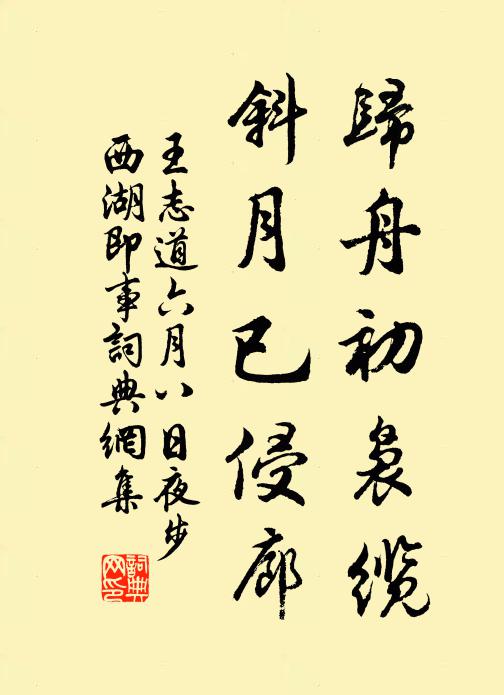 歸舟初裊纜
斜月已侵廊
王志道六月八日夜步
西湖即事詞典網集
詞典
网印